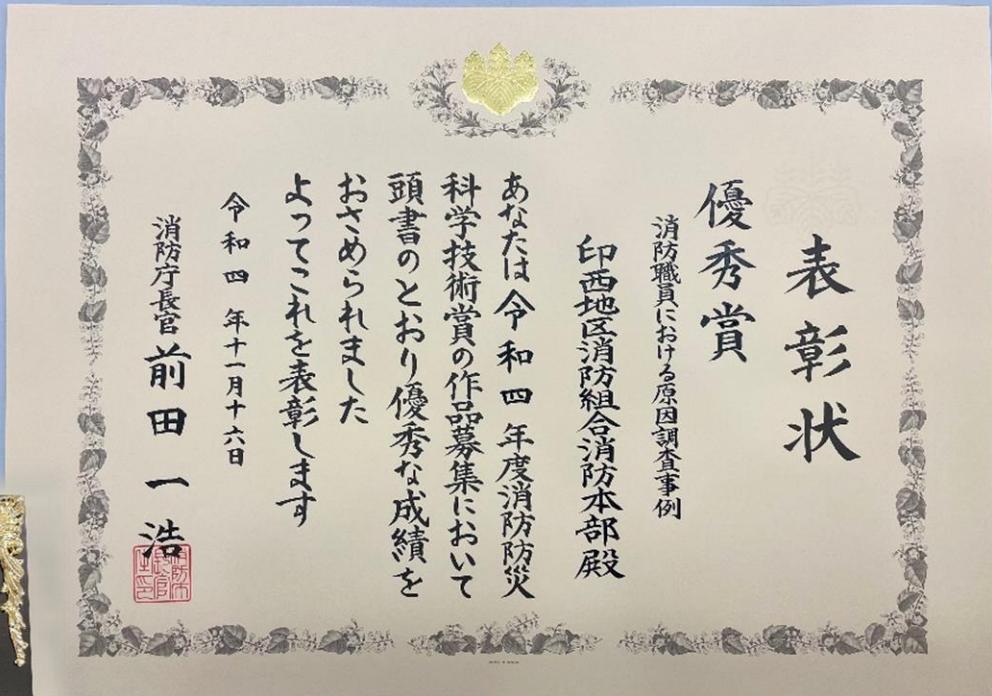 表彰状
優秀賞
消防職員における原因調査事例
印西地区消防組合消防本部殿
あなたは令和四年度消防防災
科学技術賞の作品募集において
頭書のとおり優秀な成績を
おさめられました
よってこれを表彰します
令和四年十一月十六日
消防庁長官前田一浩